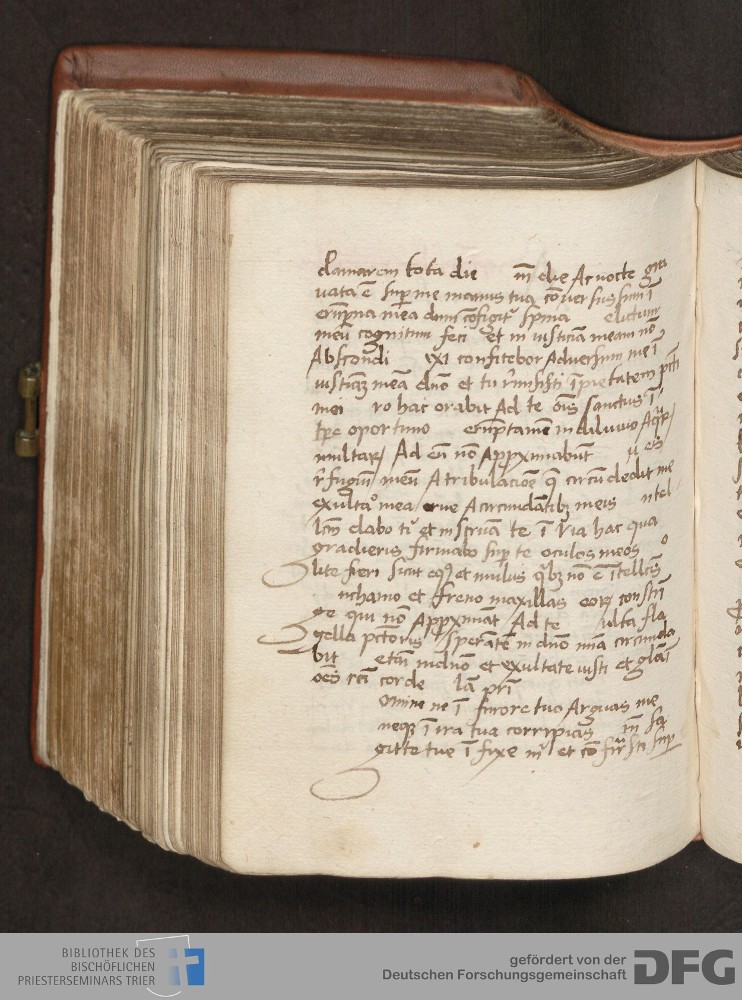 clamarem tota die m̅ die Ac nocte gra
uata e̅ sup me manus tua co̅uersus sum i̅
eru̅pna mea dum co̅figit spina elictum
meu̅ cognitum feci et in iusticia̅ meam no̅
Abscondi ixi confitebor Aduersum me i̅
iusticia̅ mea̅ dn̅o et tu r̅misisti i̅pietatem pcti
mei ro hac orabit Ad te o̅is sanctus i̅
tp̅e oportuno eru̅ptame̅ in diluuio Aq̅r
multar Ad eu̅ no̅ Appximabu̅t u es
r̅fugiu̅ meu̅ A tribulacioe̅ q̅ circu̅dedit me
exulta° mea erue A circunda̅tibꝫ meis ntel
lc̅m dabo ti° et instrua̅ te i̅ via hac qua
gradieris firmabo sup te oculos meos o
lite fieri sicut eqꝰ et mulus q̅bꝫ no̅ e̅ i̅tellc̅s
n chamo et freno maxillas eorꝫ constri̅
ge qui no̅ Appximāt Ad te ulta fla
gella pct̅oris spera̅te̅ in dn̅o mi̅a circunda
bit eta̅i in dn̅o et exultate iusti et gla̅i
oe̅s rc̅i corde la̅ pri̅
omine ne i̅ furore tuo Arguas me
neqꝫ i̅ ira tua corripias m̅ sa
gitte tue i̅ fixe m̅ et co̅ fir̅sti sup
BIBLIOTHEK DES
BISCHÖFLICHEN
PRIESTERSEMINARS TRIER
gefördert von der
Deutschen Forschungsgemeinschaft DFG